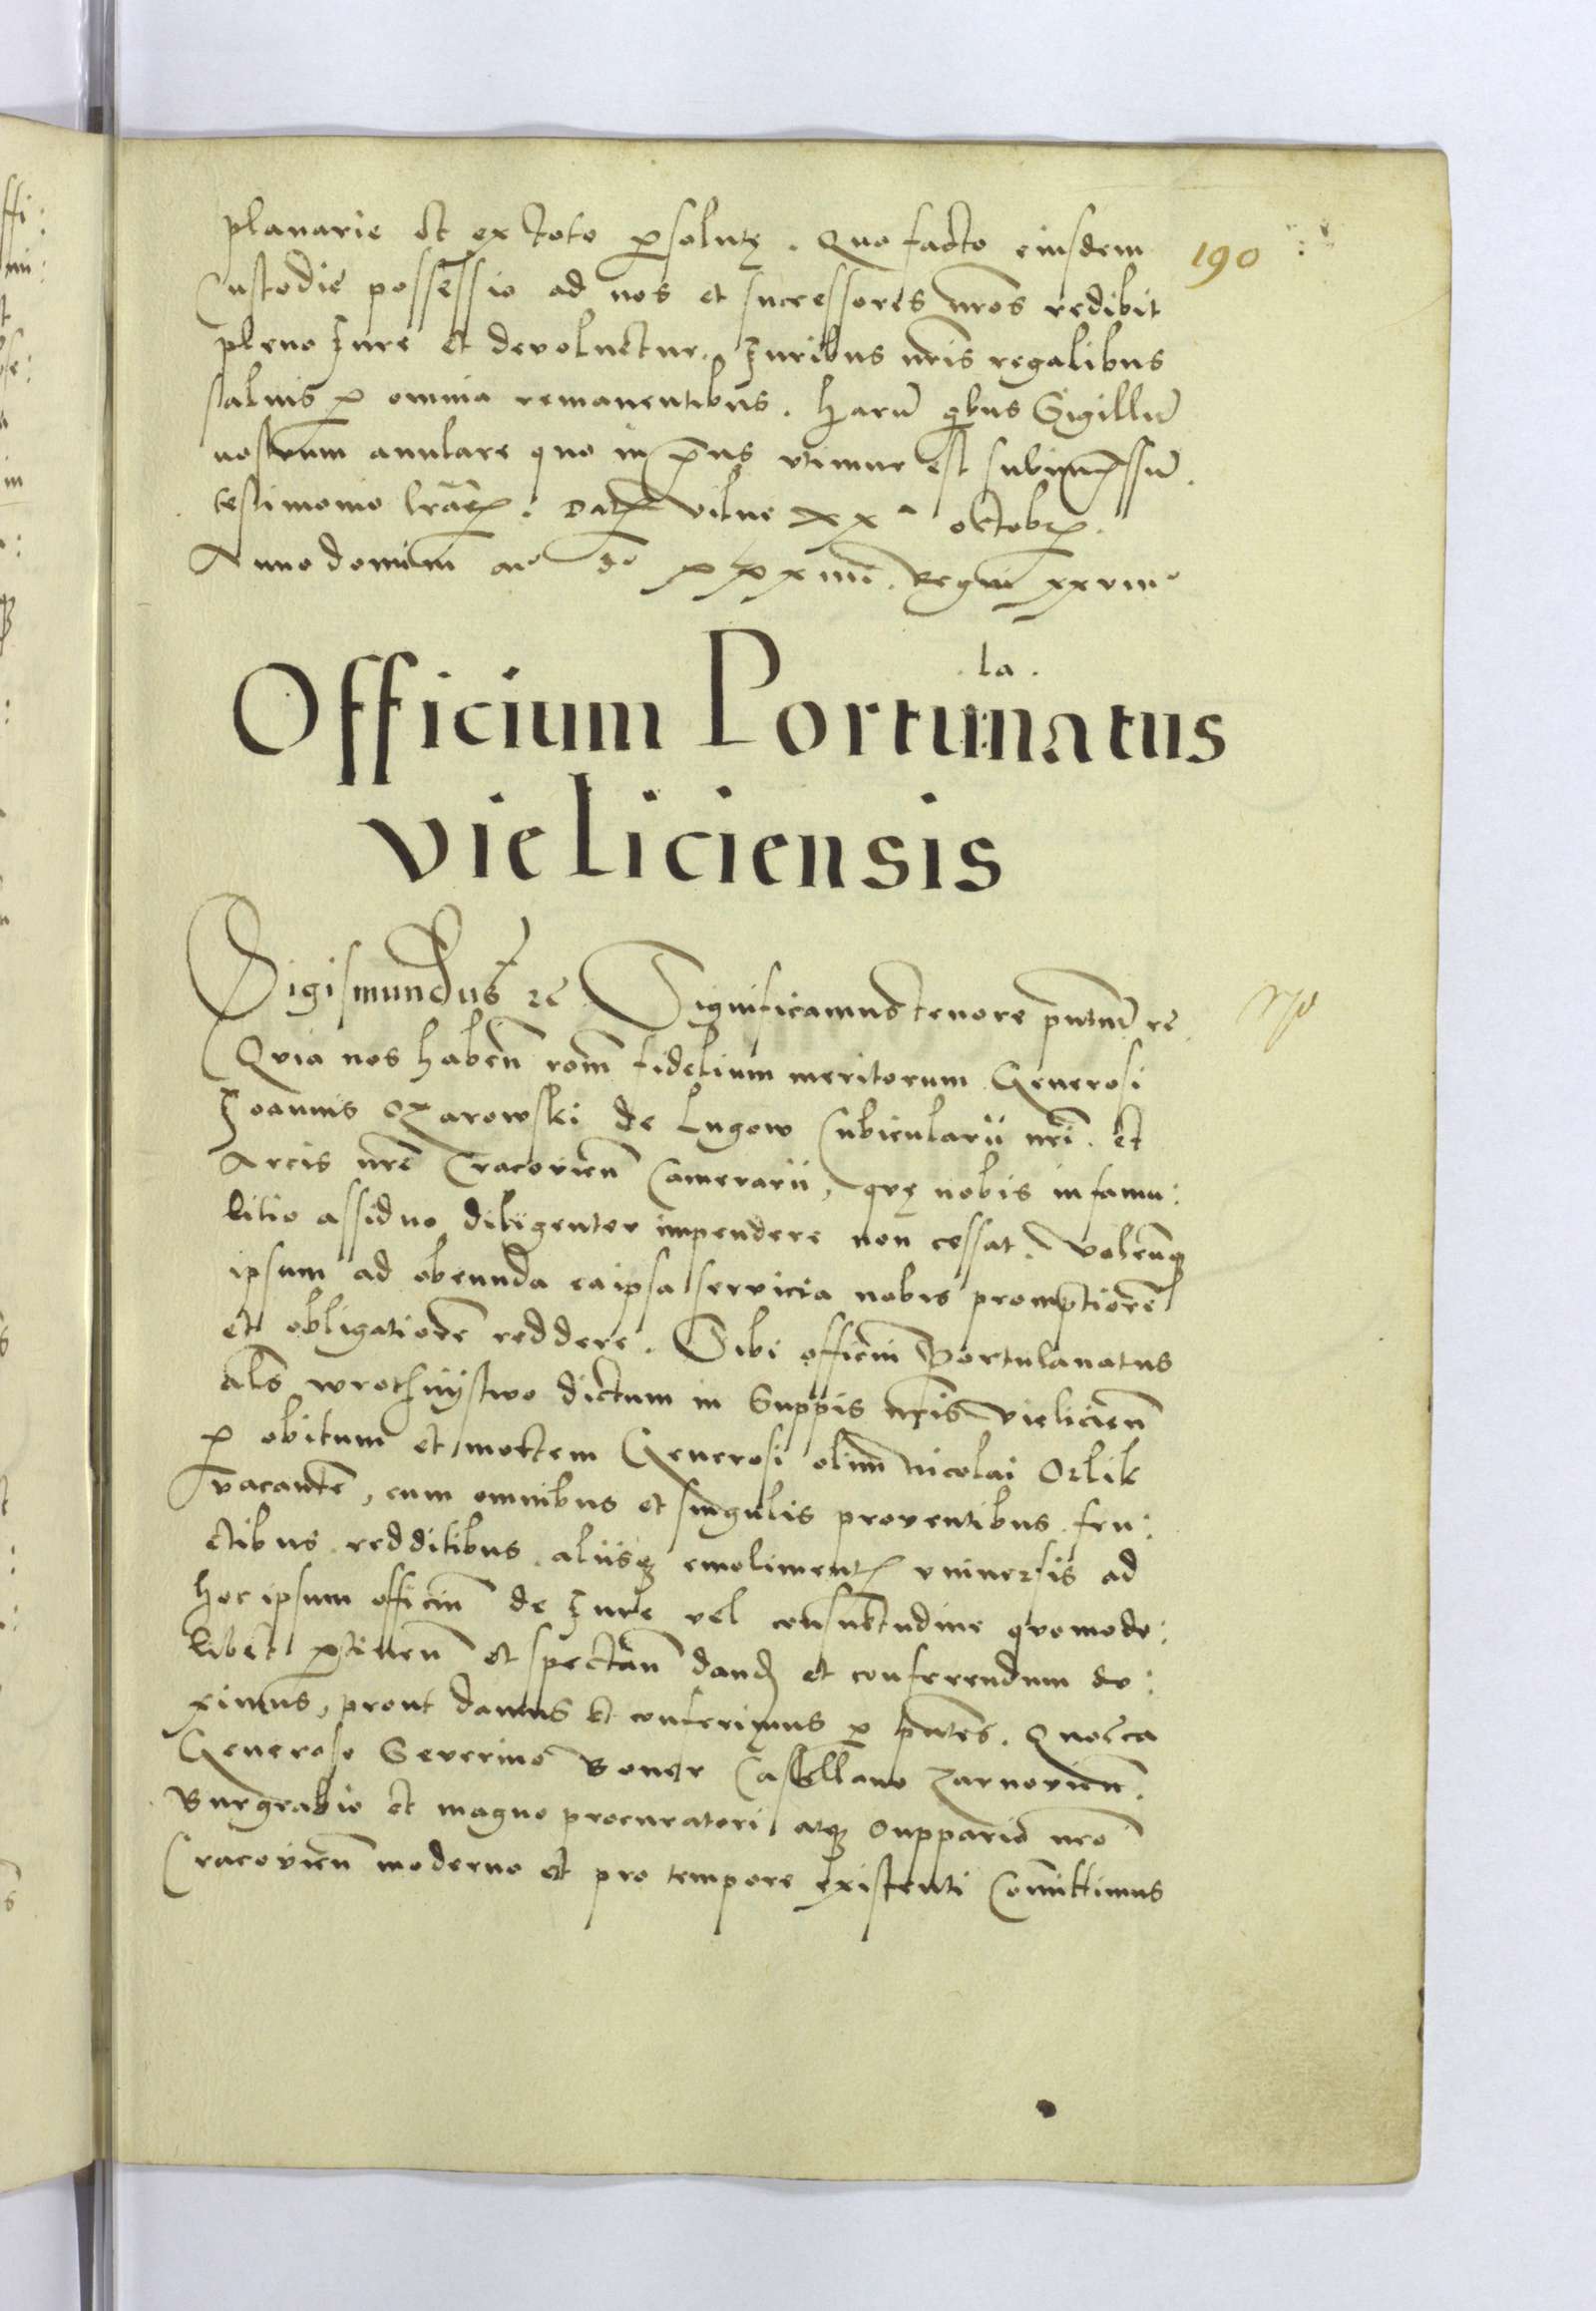 planarie et ex toto p̱solutę. Quo facto eiusdem
190
Custodie possessio ad nos et successores nr̃os redibit
pleno Jure et devoluetur. Juribus nr̃is regalibus
saluis ꝑ omnia remanentibus. Harũ quibus Sigillũ
nostrum anulare quo in p̃ns utimur est subimp̃ssũ.
testimonio lrãrꝝ. Datꝝ Vilne XXᵃ Octobrꝭ.
Anno domini Mº Dº XXXIIII. Regni XXVIIIº
la
Officium Portunatus
Vieliciensis
Sigismundus zc̃. Significamus tenore pñtium zc̃.
Quia nos habeñ roñm fidelium meritorum Generosi
Joannis Ozarowski de Lugow Cubicularii nrĩ. et
Arcis nrẽ Cracovieñ Camerarii, quę nobis in famu:
litio assiduo diligenter impendere non cessat. Volenꝙ
ipsum ad obeunda eaipsa servicia nobis promptiorẽ
et obligatiorẽ reddere. Sibi officiũ Portulanatus
als̃ wrothnÿstwo dictum in Suppis nr̃is Vielicieñ
ꝑ obitum et mortem Generosi olim Nicolai Orlik
vacanteñ, cum omnibus et singulis proventibus. fru:
ctibus. redditibus. aliisqꝫ emolimentꝭ vniversis ad
hoc ipsum officiũ de Jure vel consuetudine quomodo:
libet ꝑtineñ et spectañ danđ et conferendum du:
ximus, prout damus et conferimus ꝑ pñtes. Quocca
Generoso Severino Boner Castellano Zarnovieñ.
Burgrabio et magno procuratori atqꝫ Suppario nr̃o
Cracovieñ moderno et pro tempore existenti Com̃ittimus